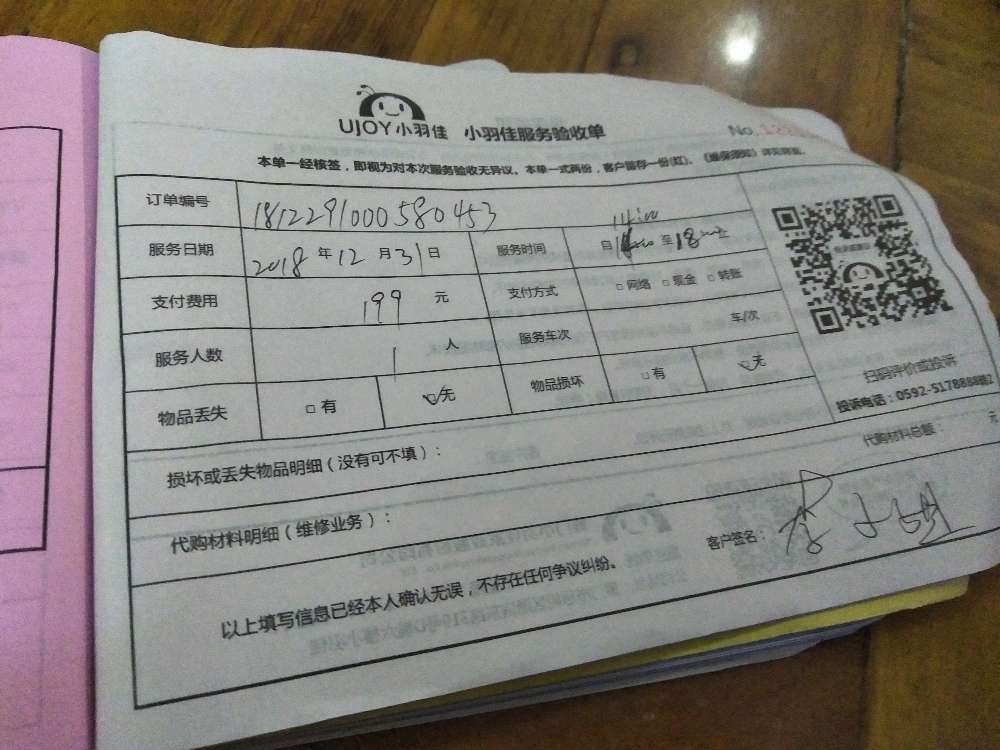 UJOY小羽佳 小羽佳服务验收单 No.
本单一经核签，即视为对本次服务验收无异议。本单一式两份，客户留存一份(红)。
订单编号 1812291000580453
14:00
服务日期 2018 年 12 月 31 日 服务时间 自 至 18 止
支付费用 199 元 支付方式 □ 网络 □ 现金 □ 转账
服务人数 1 人 服务车次 车/次
物品丢失 □ 有 ☑ 无 物品损坏 □ 有 ☑ 无
扫码评价或投诉
投诉电话：0592-5178888
损坏或丢失物品明细（没有可不填）：
代购材料明细（维修业务）： 代购材料总额： 元
客户签名：李
以上填写信息已经本人确认无误，不存在任何争议纠纷。